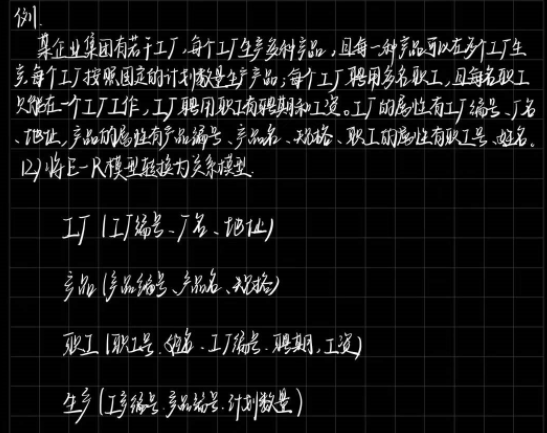 例.
某企业集团有若干工厂,每个工厂生产多种产品,且每一种产品可以在多个工厂生
产,每个工厂按照固定的计划数量生产产品;每个工厂聘用多名职工,且每名职工
只能在一个工厂工作,工厂聘用职工有聘期和工资。工厂的属性有工厂编号、厂名
、地址,产品的属性有产品编号、产品名、规格、职工的属性有职工号、姓名。
(2)将E-R模型转换为关系模型.
工厂(工厂编号、厂名、地址)
产品(产品编号、产品名、规格)
职工(职工号、姓名、工厂编号、聘期,工资)
生产(工厂编号、产品编号、计划数量)